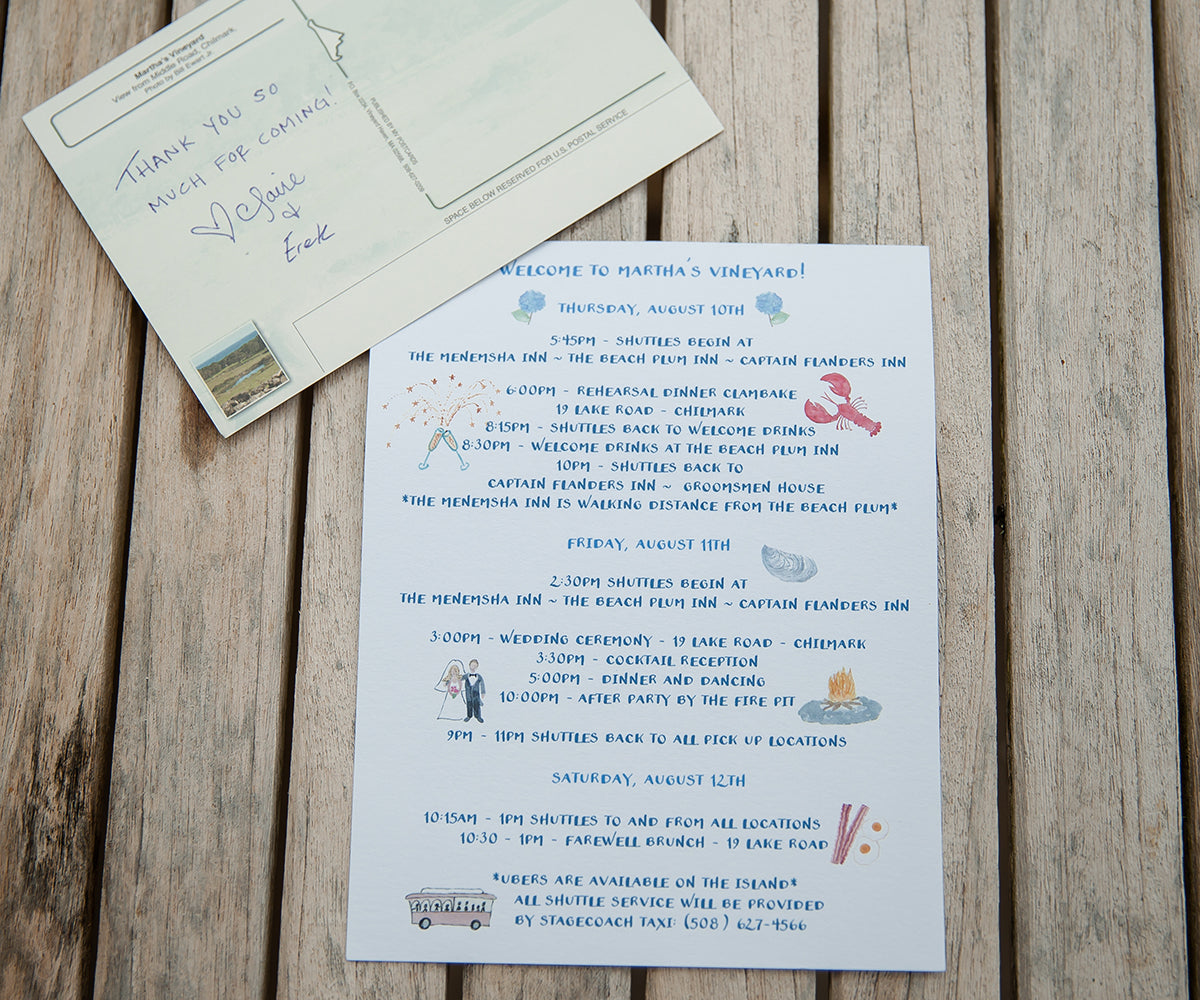 Martha's Vineyard
View from Middle Road, Chilmark.
Photo by Bill Ewart Jr.
THANK YOU SO
MUCH FOR COMING!
Claire
+
Erek
PUBLISHED BY MY POSTCARDS
SPACE BELOW RESERVED FOR U.S. POSTAL SERVICE
WELCOME TO MARTHA'S VINEYARD!
THURSDAY, AUGUST 10TH
5:45PM - SHUTTLES BEGIN AT
THE MENEMSHA INN ~ THE BEACH PLUM INN ~ CAPTAIN FLANDERS INN
6:00PM - REHEARSAL DINNER CLAMBAKE
19 LAKE ROAD - CHILMARK
8:15PM - SHUTTLES BACK TO WELCOME DRINKS
8:30PM - WELCOME DRINKS AT THE BEACH PLUM INN
10PM - SHUTTLES BACK TO
CAPTAIN FLANDERS INN ~ GROOMSMEN HOUSE
*THE MENEMSHA INN IS WALKING DISTANCE FROM THE BEACH PLUM*
FRIDAY, AUGUST 11TH
2:30PM SHUTTLES BEGIN AT
THE MENEMSHA INN ~ THE BEACH PLUM INN ~ CAPTAIN FLANDERS INN
3:00PM - WEDDING CEREMONY - 19 LAKE ROAD - CHILMARK
3:30PM - COCKTAIL RECEPTION
5:00PM - DINNER AND DANCING
10:00PM - AFTER PARTY BY THE FIRE PIT
9PM - 11PM SHUTTLES BACK TO ALL PICK UP LOCATIONS
SATURDAY, AUGUST 12TH
10:15AM - 1PM SHUTTLES TO AND FROM ALL LOCATIONS
10:30 - 1PM - FAREWELL BRUNCH - 19 LAKE ROAD
*UBERS ARE AVAILABLE ON THE ISLAND*
ALL SHUTTLE SERVICE WILL BE PROVIDED
BY STAGECOACH TAXI: (508) 627-4566